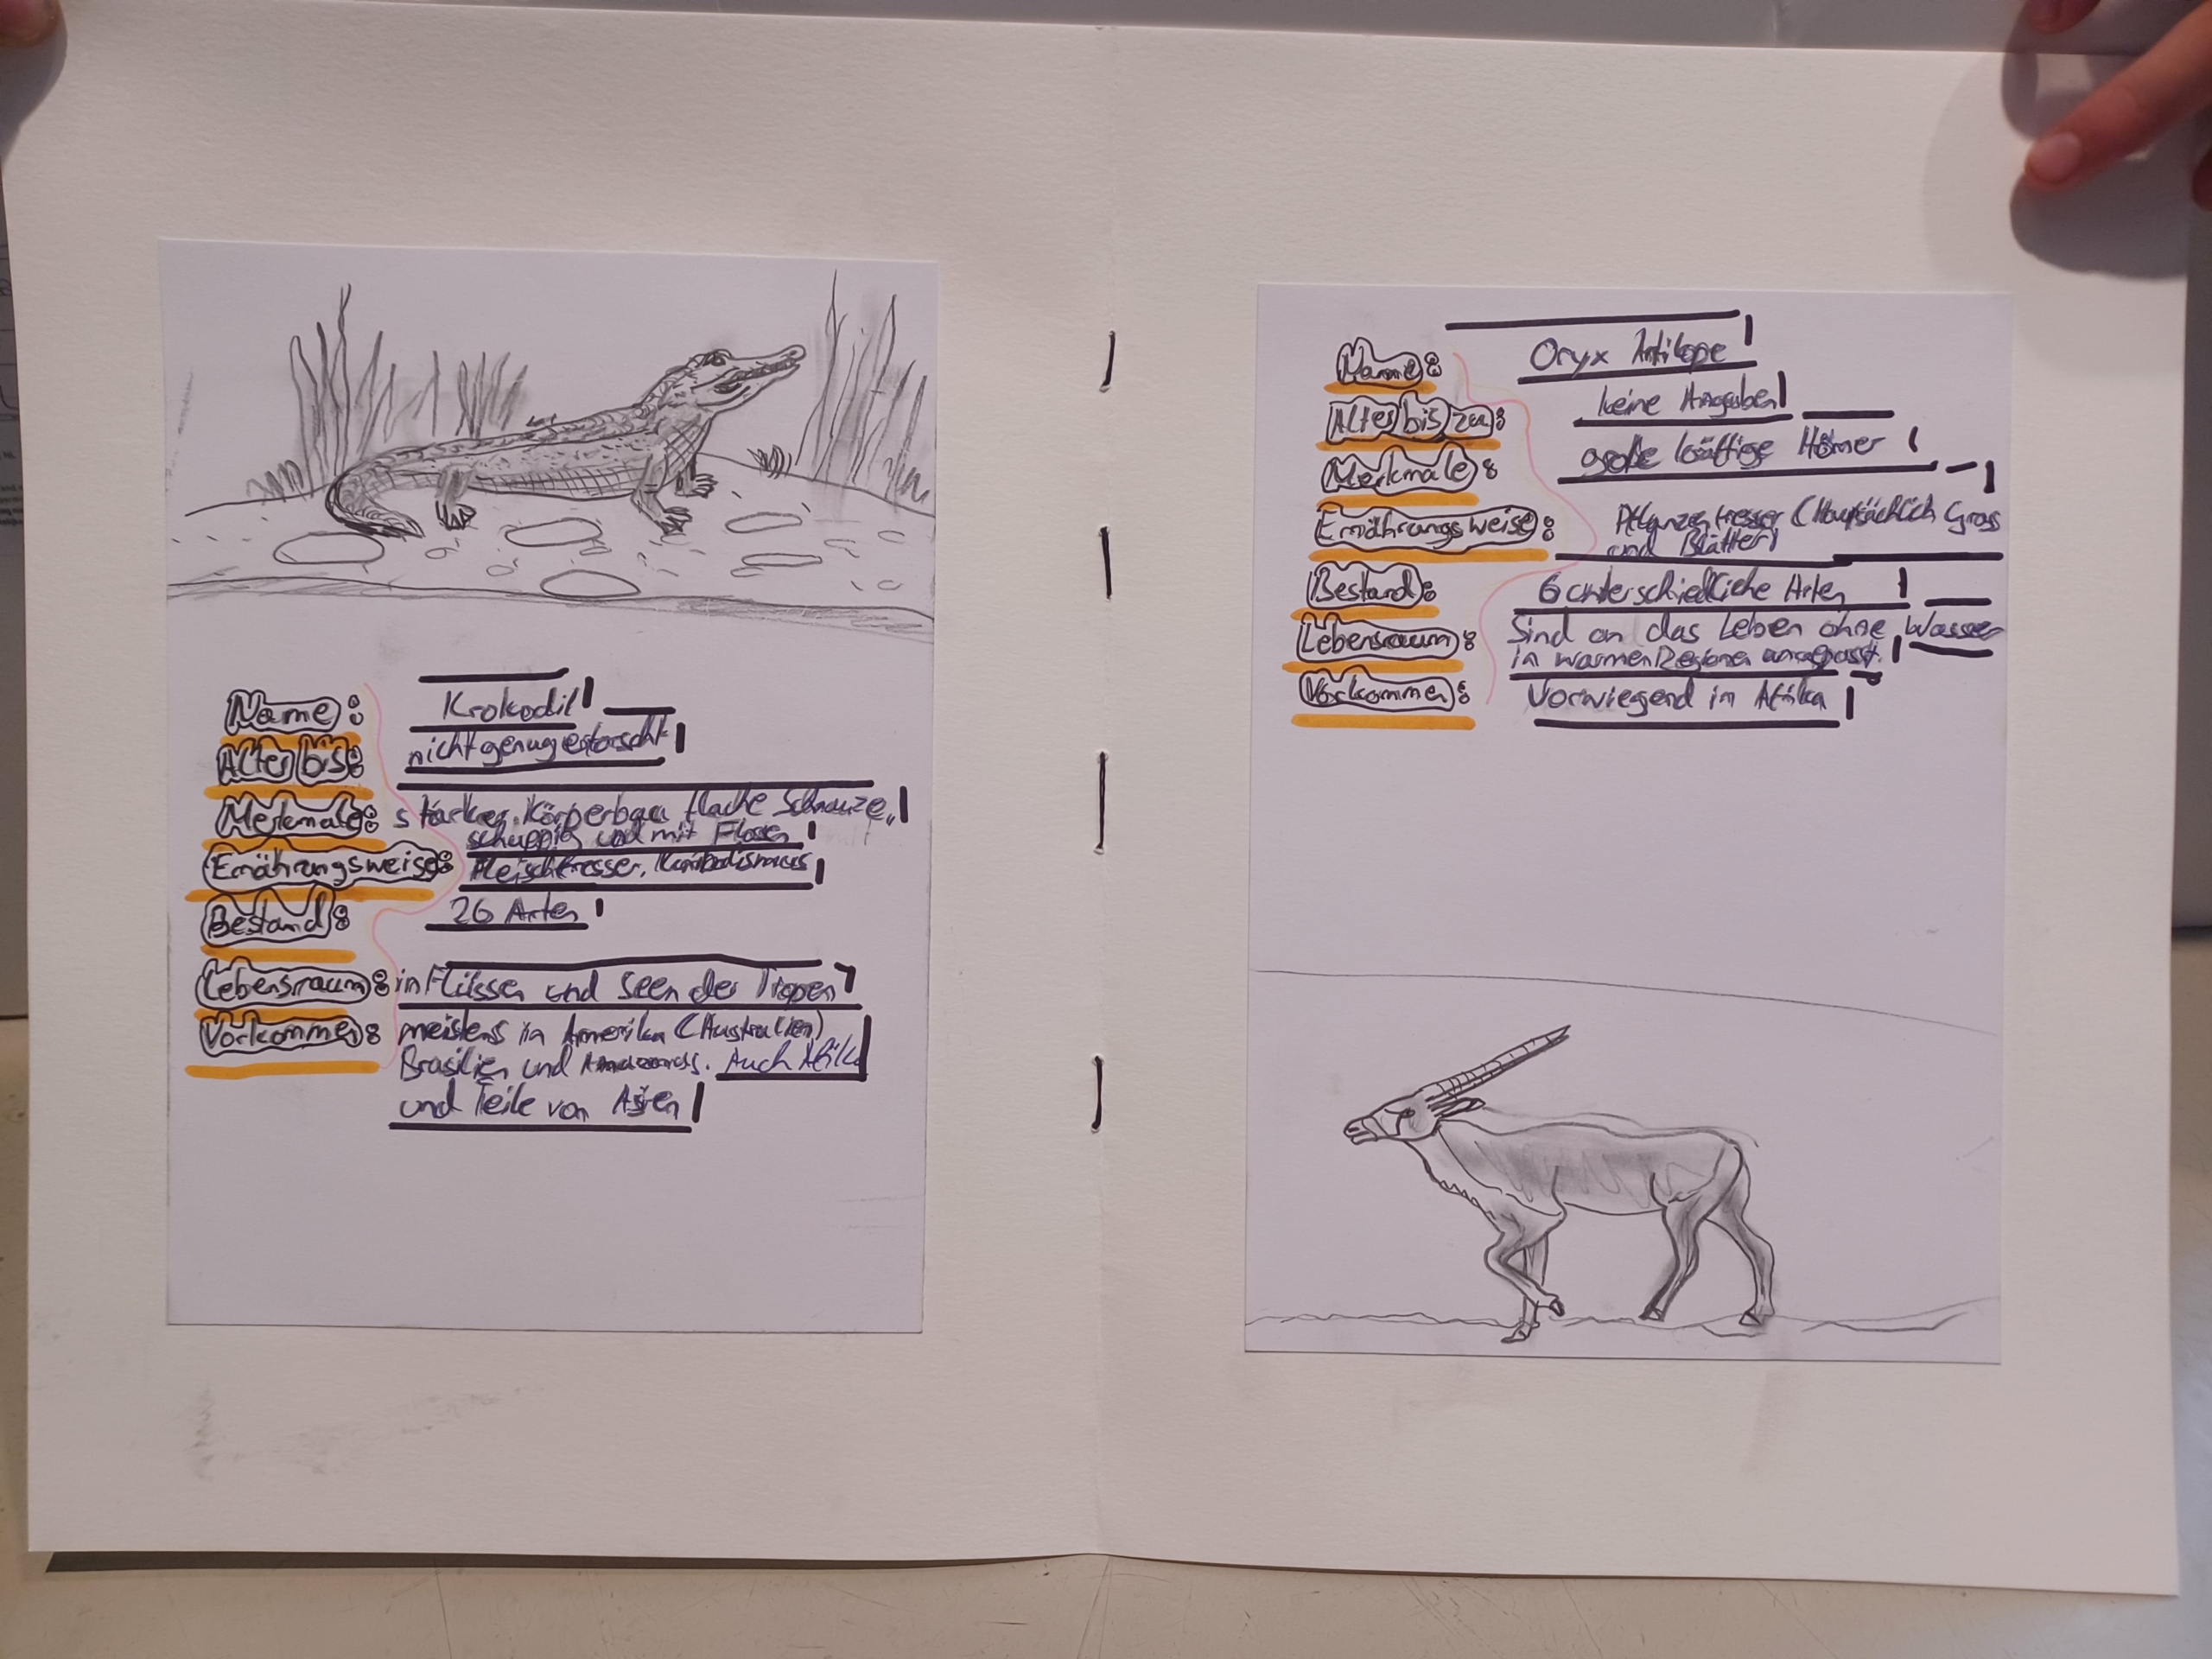 Name: Krokodil
Alter bis: nicht genug erforscht
Merkmale: starker Körperbau flache Schnauze,
schuppig und mit Flossen
Ernährungsweise: Fleischfresser, Kanibalismus
Bestand: 26 Arten
Lebensraum: in Flüssen und Seen der Tropen
Vorkommen: meistens in Amerika (Australien)
Brasilien und Auch Afrika
und Teile von Asien
Name: Oryx Antilope
Alter bis zu: keine Angaben
Merkmale: große kräftige Hörner
Ernährungsweise: Pflanzenfresser (Hauptsächlich Gras
und Blätter)
Bestand: 6 unterschiedliche Arten
Lebensraum: Sind an das Leben ohne Wasser
in warmen Regionen angepasst.
Vorkommen: Vorwiegend in Afrika